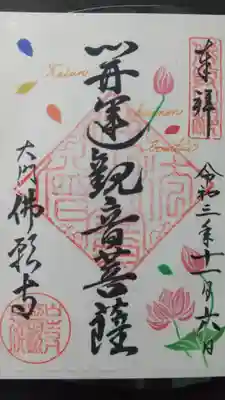 奉拝
令和三年十二月六日
開運観音菩薩
Kaiun
Kannon
Bosatsu
大門 佛願寺